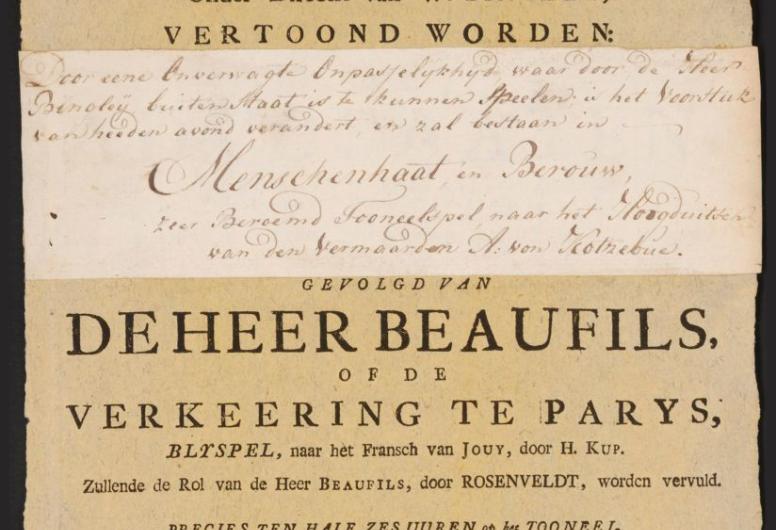 VERTOOND WORDEN:
Door eene Onverwagte Onpasselykhyd waar door de Heer
Bingley buiten Staat is te kunnen Speelen, is het Voorstuk
van heeden avond verandert, en zal bestaan in
Menschenhaat, en Berouw,
zeer Beroemd Tooneelspel, naar het Hoogduitsch
van den Vermaarden A: von Kotzebue.
GEVOLGD VAN
DE HEER BEAUFILS,
OF DE
VERKEERING TE PARYS,
BLYSPEL, naar het Fransch van JOUY, door H. KUP.
Zullende de Rol van de Heer BEAUFILS, door ROSENVELDT, worden vervuld.
PRECIES TEN HALF ZES UUREN op het TOONEEL.